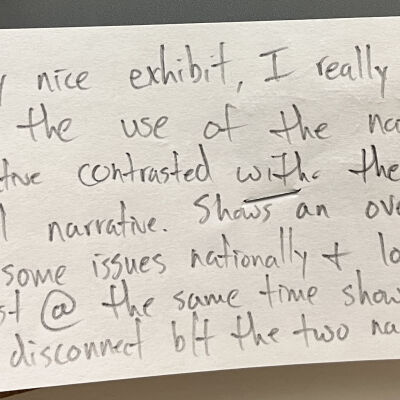 y nice exhibit, I really
the use of the na
tive contrasted with the
l narrative. Shows an ove
some issues nationally + lo
st @ the same time show
disconnect b/t the two na